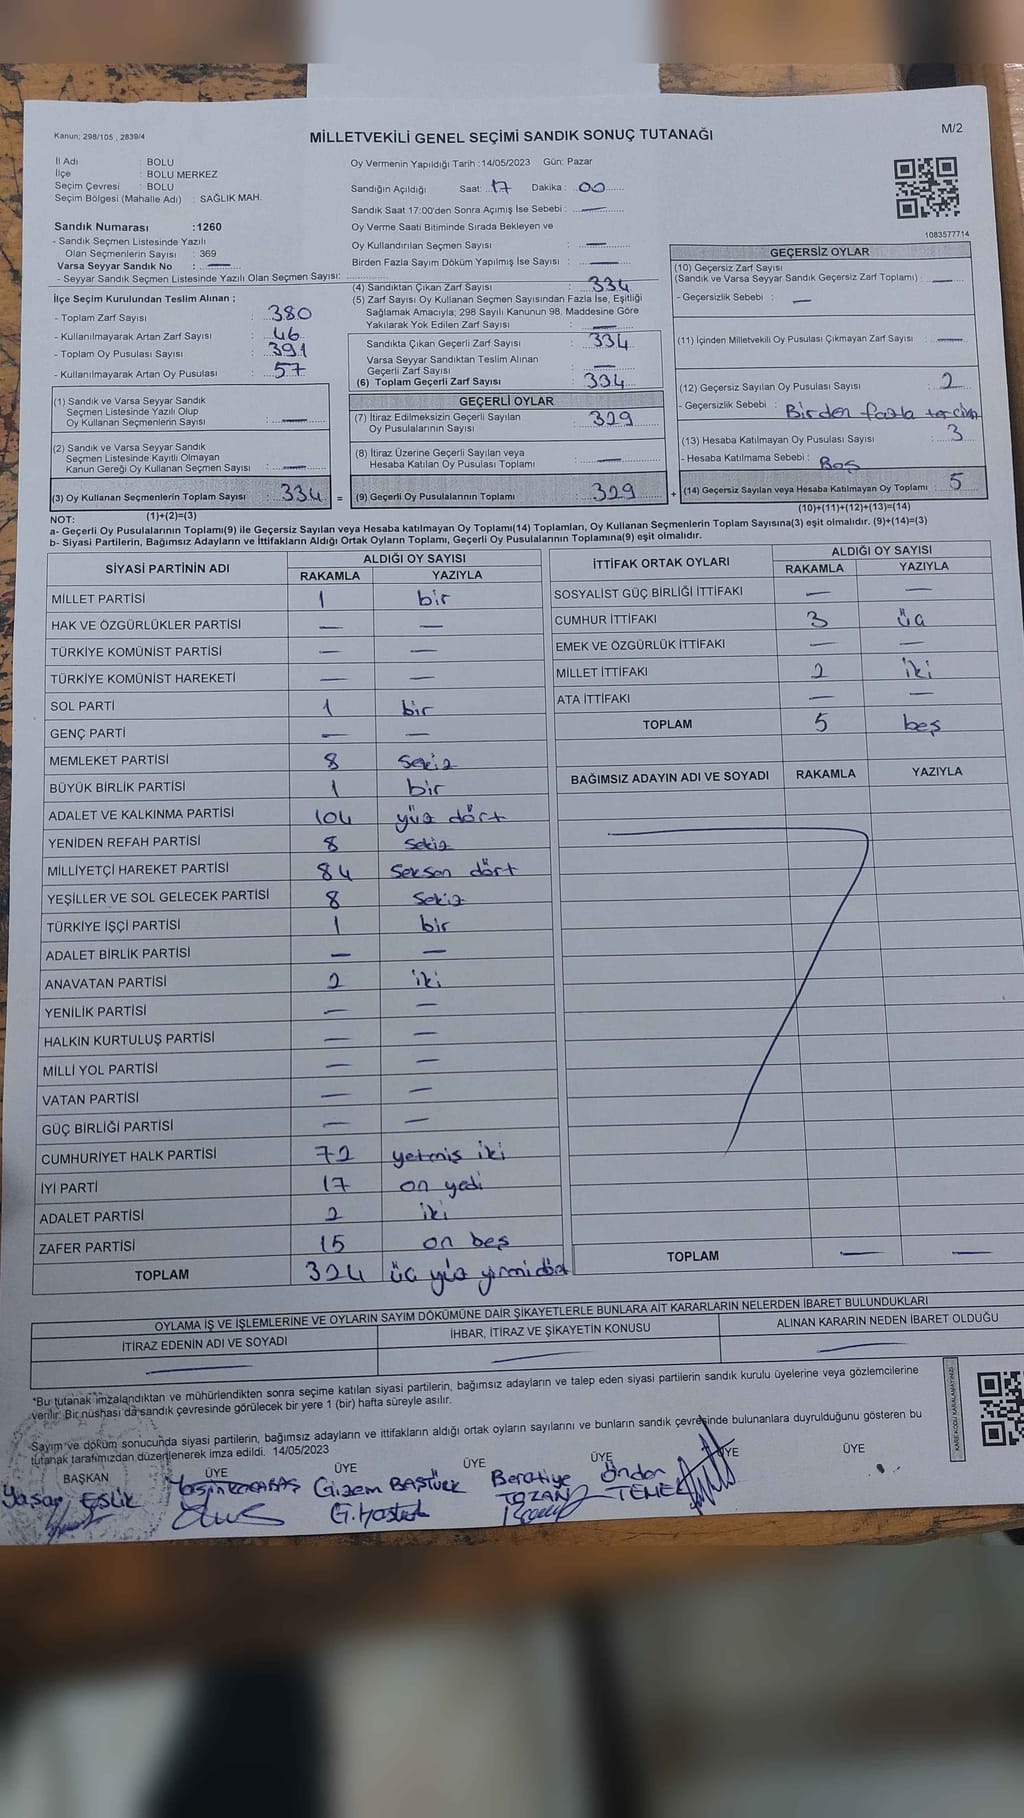 Kanun; 298/105 , 2839/4
MİLLETVEKİLİ GENEL SEÇİMİ SANDIK SONUÇ TUTANAĞI
M/2
İl Adı : BOLU
İlçe : BOLU MERKEZ
Seçim Çevresi : BOLU
Seçim Bölgesi (Mahalle Adı) : SAĞLIK MAH.
Oy Vermenin Yapıldığı Tarih :14/05/2023 Gün: Pazar
Sandığın Açıldığı Saat: 17 Dakika : 00
Sandık Saat 17:00'den Sonra Açımış İse Sebebi : —
Oy Verme Saati Bitiminde Sırada Bekleyen ve
Oy Kullandırılan Seçmen Sayısı : —
Birden Fazla Sayım Döküm Yapılmış İse Sayısı : —
1083577714
Sandık Numarası :1260
- Sandık Seçmen Listesinde Yazılı
Olan Seçmenlerin Sayısı : 369
Varsa Seyyar Sandık No : —
- Seyyar Sandık Seçmen Listesinde Yazılı Olan Seçmen Sayısı:
İlçe Seçim Kurulundan Teslim Alınan ;
- Toplam Zarf Sayısı : 380
- Kullanılmayarak Artan Zarf Sayısı : 46
- Toplam Oy Pusulası Sayısı : 391
- Kullanılmayarak Artan Oy Pusulası : 57
(1) Sandık ve Varsa Seyyar Sandık
Seçmen Listesinde Yazılı Olup
Oy Kullanan Seçmenlerin Sayısı : —
(2) Sandık ve Varsa Seyyar Sandık
Seçmen Listesinde Kayıtlı Olmayan
Kanun Gereği Oy Kullanan Seçmen Sayısı : —
(3) Oy Kullanan Seçmenlerin Toplam Sayısı : 334 =
(1)+(2)=(3)
(4) Sandıktan Çıkan Zarf Sayısı : 334
(5) Zarf Sayısı Oy Kullanan Seçmen Sayısından Fazla İse, Eşitliği
Sağlamak Amacıyla; 298 Sayılı Kanunun 98. Maddesine Göre
Yakılarak Yok Edilen Zarf Sayısı : —
Sandıkta Çıkan Geçerli Zarf Sayısı : 334
Varsa Seyyar Sandıktan Teslim Alınan
Geçerli Zarf Sayısı : —
(6) Toplam Geçerli Zarf Sayısı : 334
GEÇERLİ OYLAR
(7) İtiraz Edilmeksizin Geçerli Sayılan
Oy Pusulalarının Sayısı : 329
(8) İtiraz Üzerine Geçerli Sayılan veya
Hesaba Katılan Oy Pusulası Toplamı : —
(9) Geçerli Oy Pusulalarının Toplamı : 329 +
GEÇERSİZ OYLAR
(10) Geçersiz Zarf Sayısı
(Sandık ve Varsa Seyyar Sandık Geçersiz Zarf Toplamı) : —
- Geçersizlik Sebebi : —
(11) İçinden Milletvekili Oy Pusulası Çıkmayan Zarf Sayısı : —
(12) Geçersiz Sayılan Oy Pusulası Sayısı : 2
- Geçersizlik Sebebi : Birden fazla tercih
(13) Hesaba Katılmayan Oy Pusulası Sayısı : 3
- Hesaba Katılmama Sebebi : Boş
(14) Geçersiz Sayılan veya Hesaba Katılmayan Oy Toplamı : 5
(10)+(11)+(12)+(13)=(14)
NOT:
a- Geçerli Oy Pusulalarının Toplamı(9) ile Geçersiz Sayılan veya Hesaba katılmayan Oy Toplamı(14) Toplamları, Oy Kullanan Seçmenlerin Toplam Sayısına(3) eşit olmalıdır. (9)+(14)=(3)
b- Siyasi Partilerin, Bağımsız Adayların ve İttifakların Aldığı Ortak Oyların Toplamı, Geçerli Oy Pusulalarının Toplamına(9) eşit olmalıdır.
SİYASİ PARTİNİN ADI ALDIĞI OY SAYISI
RAKAMLA YAZIYLA
MİLLET PARTİSİ 1 bir
HAK VE ÖZGÜRLÜKLER PARTİSİ — —
TÜRKİYE KOMÜNİST PARTİSİ — —
TÜRKİYE KOMÜNİST HAREKETİ — —
SOL PARTİ 1 bir
GENÇ PARTİ — —
MEMLEKET PARTİSİ 8 sekiz
BÜYÜK BİRLİK PARTİSİ 1 bir
ADALET VE KALKINMA PARTİSİ 104 yüz dört
YENİDEN REFAH PARTİSİ 8 sekiz
MİLLİYETÇİ HAREKET PARTİSİ 84 seksen dört
YEŞİLLER VE SOL GELECEK PARTİSİ 8 sekiz
TÜRKİYE İŞÇİ PARTİSİ 1 bir
ADALET BİRLİK PARTİSİ — —
ANAVATAN PARTİSİ 2 iki
YENİLİK PARTİSİ — —
HALKIN KURTULUŞ PARTİSİ — —
MİLLİ YOL PARTİSİ — —
VATAN PARTİSİ — —
GÜÇ BİRLİĞİ PARTİSİ — —
CUMHURİYET HALK PARTİSİ 72 yetmiş iki
İYİ PARTİ 17 on yedi
ADALET PARTİSİ 2 iki
ZAFER PARTİSİ 15 on beş
TOPLAM 324 üç yüz yirmi dört
İTTİFAK ORTAK OYLARI ALDIĞI OY SAYISI
RAKAMLA YAZIYLA
SOSYALİST GÜÇ BİRLİĞİ İTTİFAKI — —
CUMHUR İTTİFAKI 3 üç
EMEK VE ÖZGÜRLÜK İTTİFAKI — —
MİLLET İTTİFAKI 2 iki
ATA İTTİFAKI — —
TOPLAM 5 beş
BAĞIMSIZ ADAYIN ADI VE SOYADI RAKAMLA YAZIYLA
TOPLAM — —
OYLAMA İŞ VE İŞLEMLERİNE VE OYLARIN SAYIM DÖKÜMÜNE DAİR ŞİKAYETLERLE BUNLARA AİT KARARLARIN NELERDEN İBARET BULUNDUKLARI
İTİRAZ EDENİN ADI VE SOYADI İHBAR, İTİRAZ VE ŞİKAYETİN KONUSU ALINAN KARARIN NEDEN İBARET OLDUĞU
— — —
*Bu tutanak imzalandıktan ve mühürlendikten sonra seçime katılan siyasi partilerin, bağımsız adayların ve talep eden siyasi partilerin sandık kurulu üyelerine veya gözlemcilerine
verilir. Bir nüshası da sandık çevresinde görülecek bir yere 1 (bir) hafta süreyle asılır.
Sayım ve döküm sonucunda siyasi partilerin, bağımsız adayların ve ittifakların aldığı ortak oyların sayılarını ve bunların sandık çevresinde bulunanlara duyrulduğunu gösteren bu
tutanak tarafımızdan düzenlenerek imza edildi. 14/05/2023
KARE KODU KARALAMAYINIZ!
BAŞKAN ÜYE ÜYE ÜYE ÜYE ÜYE ÜYE
Yaşar EŞLİK Gizem BAŞTÜRK Beratiye TOZAN Önder TEMEL